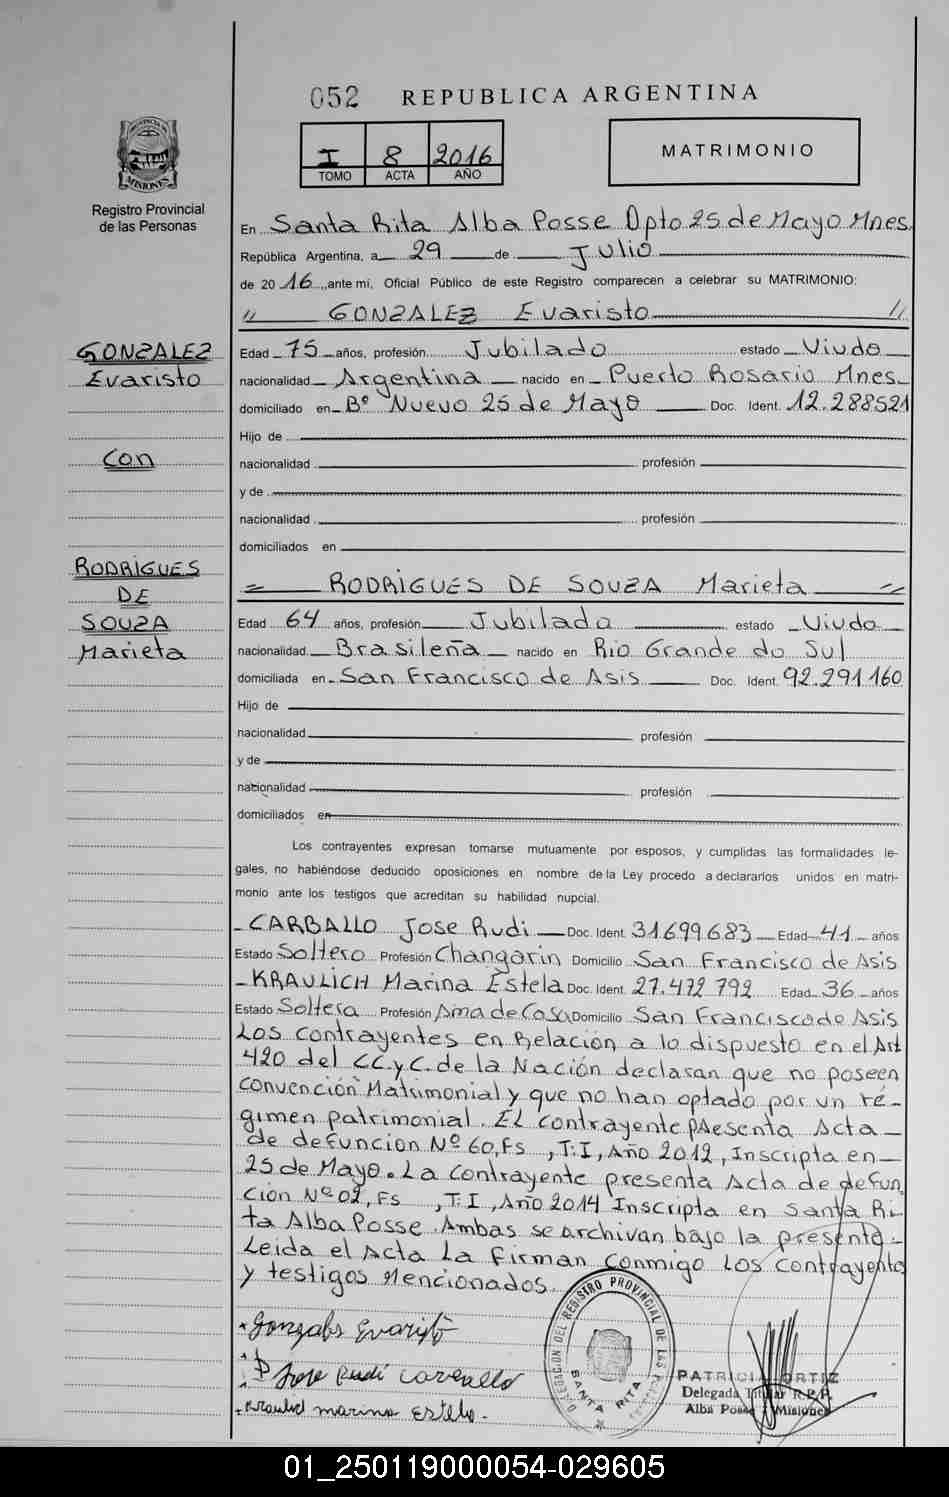 052 REPUBLICA ARGENTINA
PROVINCIA DE
MISIONES
Registro Provincial
de las Personas
I 8 2016
TOMO ACTA AÑO
MATRIMONIO
En Santa Rita Alba Posse Dpto 25 de Mayo Mnes.
República Argentina, a 29 de Julio
de 20 16, ante mi, Oficial Público de este Registro comparecen a celebrar su MATRIMONIO:
" GONZALEZ Evaristo "
GONZALEZ
Evaristo
Con
RODRIGUES
DE
SOUZA
Marieta
Edad 75 años, profesión Jubilado estado Viudo
nacionalidad Argentina nacido en Puerto Rosario Mnes
domiciliado en Bº Nuevo 25 de Mayo Doc. Ident. 12.288521
Hijo de
nacionalidad profesión
y de
nacionalidad profesión
domiciliados en
= RODRIGUES DE SOUZA Marieta =
Edad 64 años, profesión Jubilada estado Viuda
nacionalidad Brasileña nacido en Rio Grande do Sul
domiciliada en San Francisco de Asis Doc. Ident. 92.291.160
Hijo de
nacionalidad profesión
y de
nacionalidad profesión
domiciliados en
Los contrayentes expresan tomarse mutuamente por esposos, y cumplidas las formalidades le-
gales, no habiéndose deducido oposiciones en nombre de la Ley procedo a declararlos unidos en matri-
monio ante los testigos que acreditan su habilidad nupcial.
- CARBALLO Jose Rudi Doc. Ident. 31699683 Edad 41 años
Estado Soltero Profesión Changarin Domicilio San Francisco de Asis
- KRAULICH Marina Estela Doc. Ident. 27.472 792 Edad 36 años
Estado Soltera Profesión Ama de Casa Domicilio San Francisco de Asis
Los contrayentes en Relación a lo dispuesto en el Art
420 del CC.y C. de la Nación declaran que no poseen
convención Matrimonial y que no han optado por un ré-
gimen patrimonial. El contrayente presenta Acta
de defuncion Nº 60, Fs , T: I, Año 2012, Inscripta en
25 de Mayo. La contrayente presenta Acta de defun
cion Nº 02, Fs , T: I, Año 2014 Inscripta en Santa Ri-
ta Alba Posse. Ambas se archivan bajo la presente.
Leida el Acta La firman conmigo Los contrayente
y testigos Mencionados.
Gonzales Evaristo
Jose Rudi Carballo
Kraulich marina Estela.
DELEGACION DEL REGISTRO PROVINCIAL DE LAS
SANTA RITA
PATRICIA ORTIZ
Delegada Titular R.P.P.
Alba Posse - Misiones
01_250119000054-029605